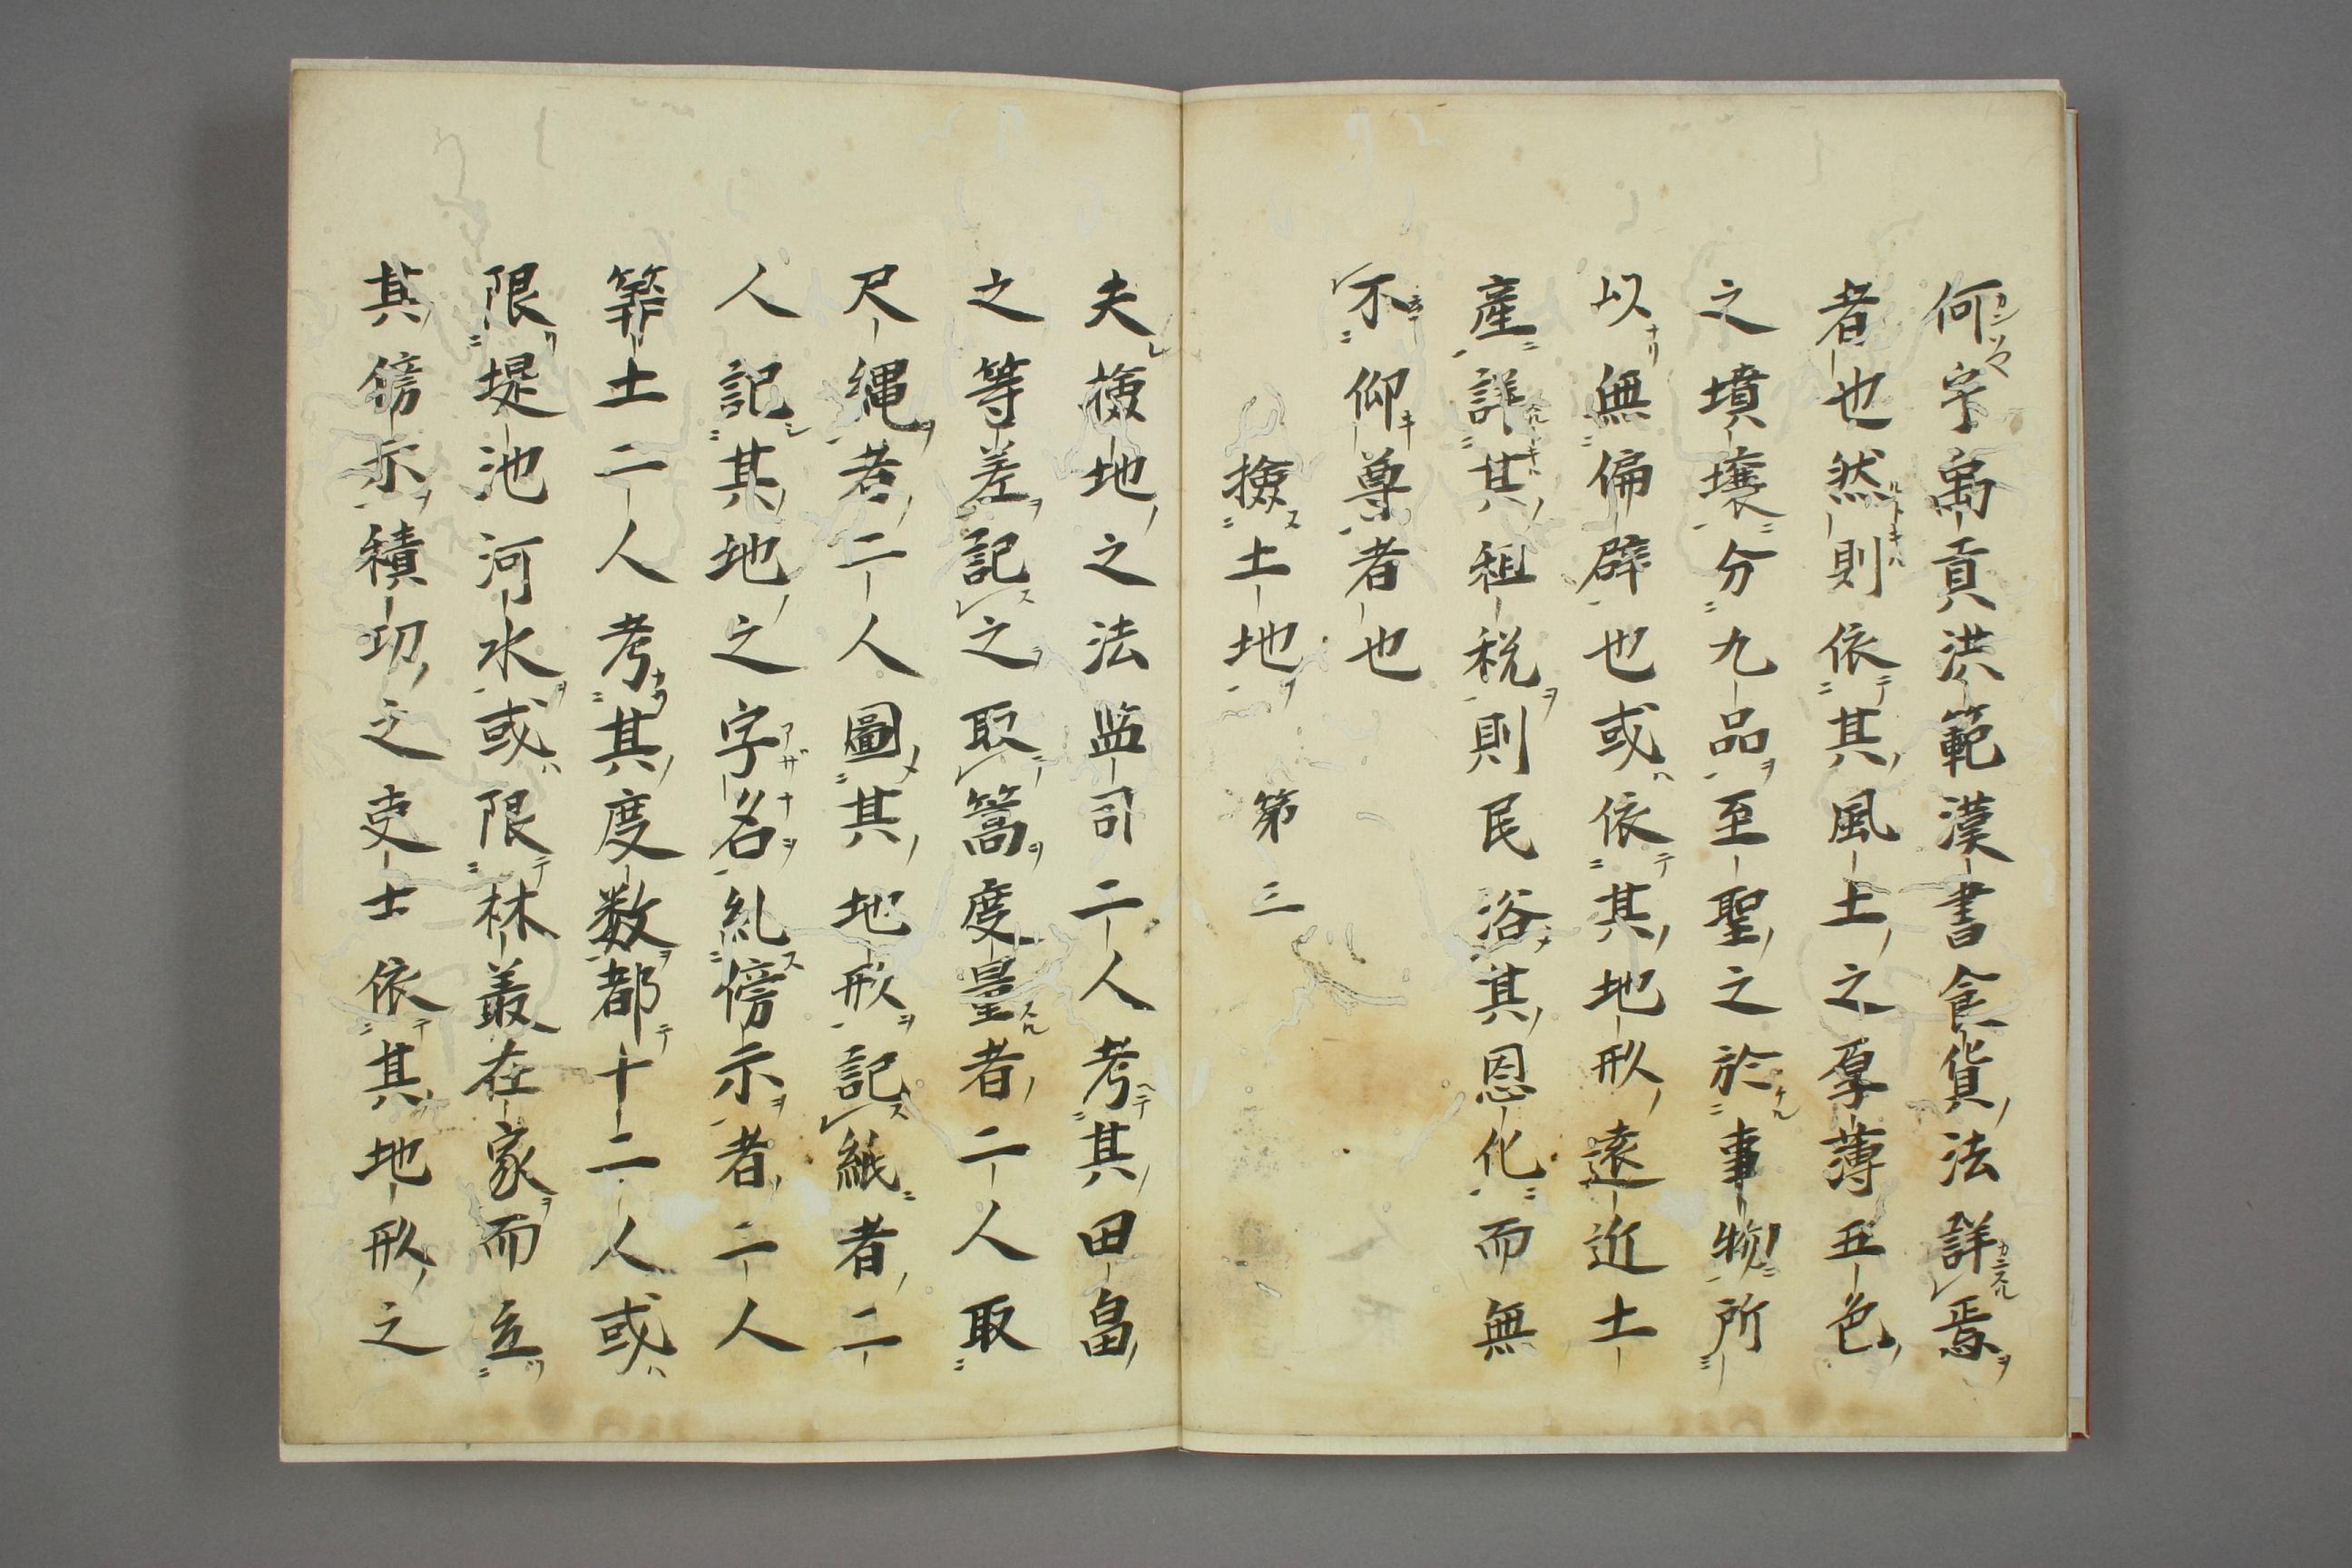 何字禹貢洪範漢書食貨法詳焉
者也然則依其風土之厚薄五色
之墳壌分九品至聖之於事物所
以無偏辟也或依其地形遠近土
産詳其租税則民浴其恩化而無
不仰尊者也
撿土地 第三
夫撿地之法监司二人考其田畠
之等差記之取篙度量者二人取
尺縄者二人圖其地形記紙者二
人記其地之字名糺傍示者二人
筭土二人考其度数都十二人或
限堤池河水或限林叢在家而立
其傍示積功之吏士依其地形之